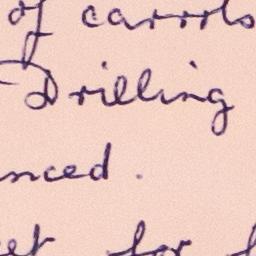 of carrots
Drilling
nced.
et for